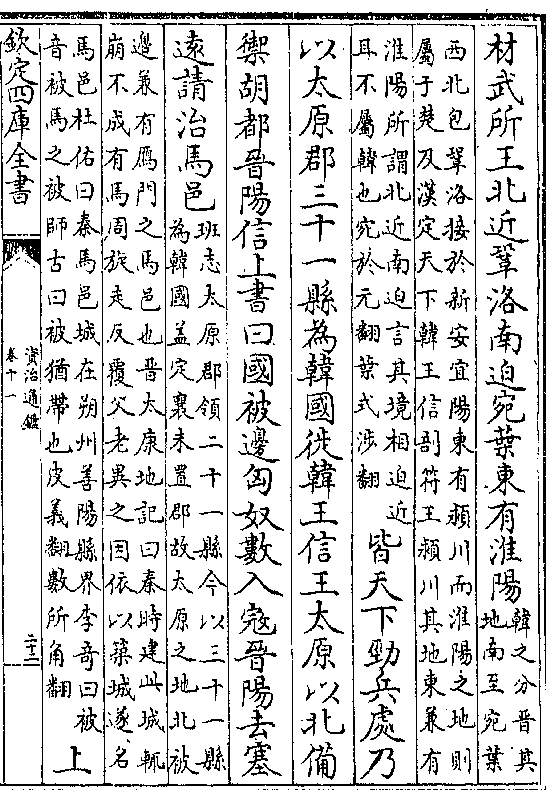 材武所王北近鞏洛南迫宛葉東有淮陽
韓之分晉其
地南至宛葉
西北包鞏洛接於新安宜陽東有潁川而淮陽之地則
屬于楚及漢定天下韓王信剖符王潁川其地東兼有
淮陽所謂北近南迫言其境相迫近
耳不屬韓也宛於元翻葉式涉翻
皆天下勁兵處乃
以太原郡三十一縣為韓國徙韓王信王太原以北備
禦胡都晉陽信上書曰國被邊匈奴數入寇晉陽去塞
遠請治馬邑
班志太原郡領二十一縣今以三十一縣
為韓國盖定襄未置郡故太原之地北被
邊兼有鴈門之馬邑也晉太康地記曰秦時建此城輒
崩不成有馬周旋走反覆父老異之因依以築城遂名
馬邑杜佑曰秦馬邑城在朔州善陽縣界李奇曰被
音被馬之被師古曰被猶帶也皮義翻數所角翻
上
欽定四庫全書
資治通鑑
卷十一
二十三